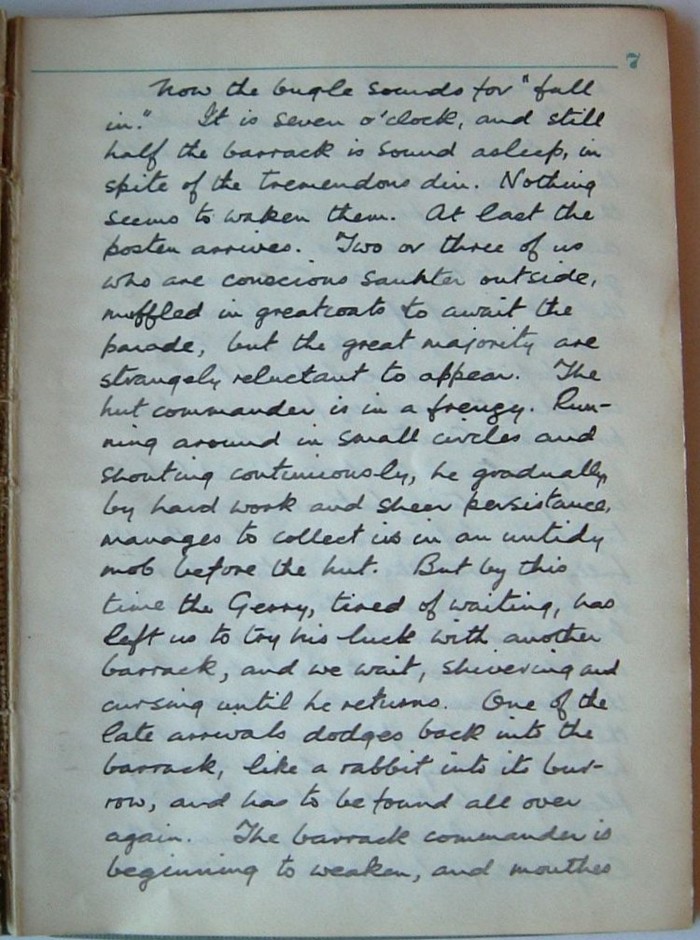 7
Now the bugle sounds for "fall
in." It is seven o'clock, and still
half the barrack is sound asleep, in
spite of the tremendous din. Nothing
seems to waken them. At last the
posten arrives. Two or three of us
who are conscious saunter outside,
muffled in greatcoats to await the
parade, but the great majority are
strangely reluctant to appear. The
hut commander is in a frenzy. Run-
ning around in small circles and
shouting continuously, he gradually,
by hard work and sheer persistance,
manages to collect us in an untidy
mob before the hut. But by this
time the Gerry, tired of waiting, has
left us to try his luck with another
barrack, and we wait, shivering and
cursing until he returns. One of the
late arrivals dodges back into the
barrack, like a rabbit into its bur-
row, and has to be found all over
again. The barrack commander is
beginning to weaken, and mouthes